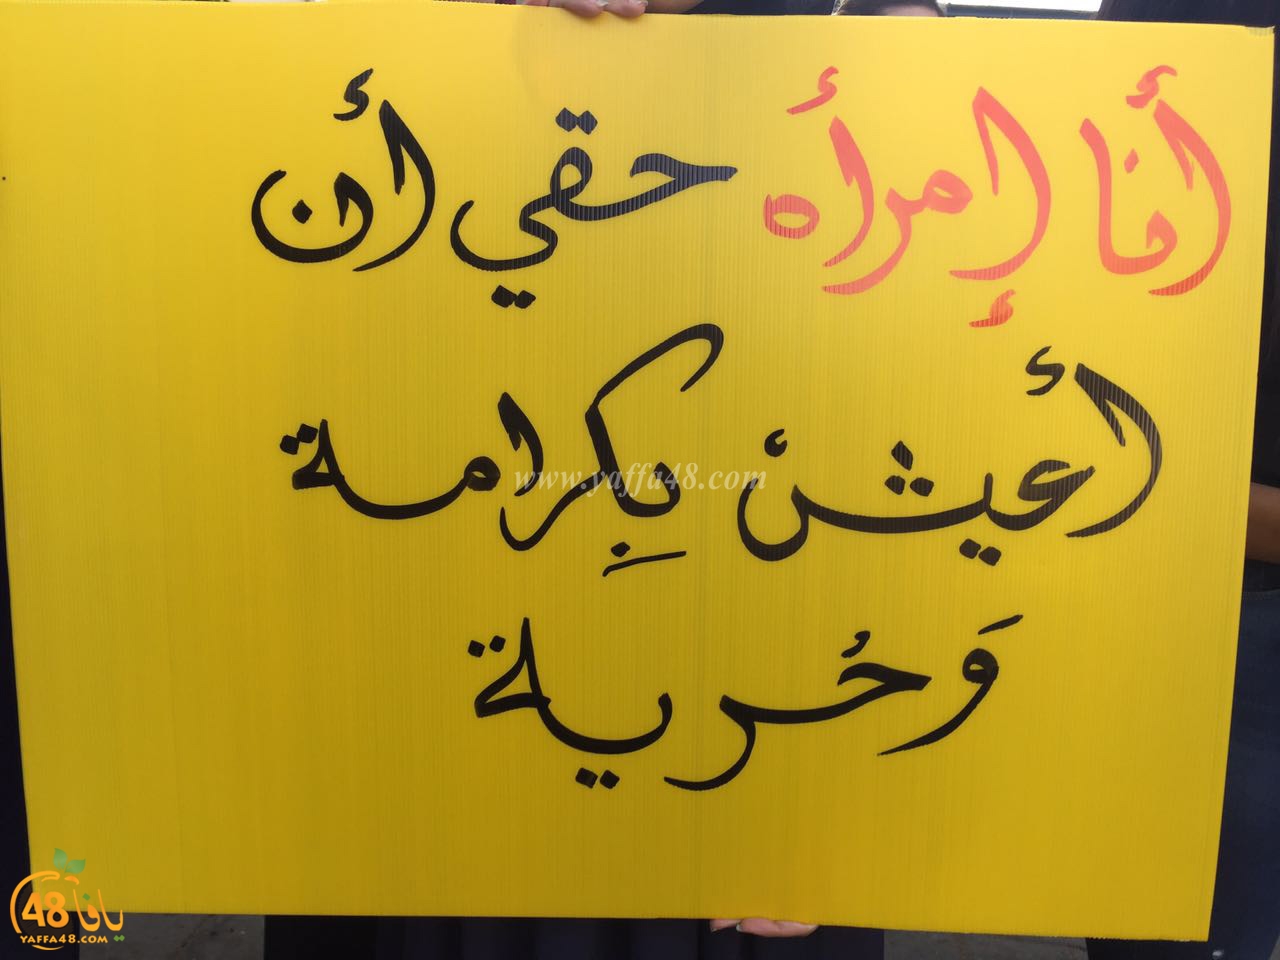 أنا إمرأه حقي أن
أعيشْ بِكرامة
وَحُرية
www.yaffa48.com
48 يافا
YAFFA48.COM